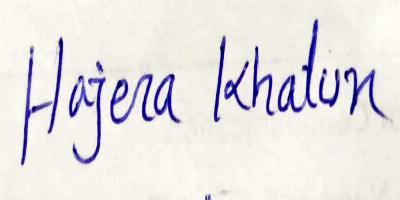 Hajera Khatun